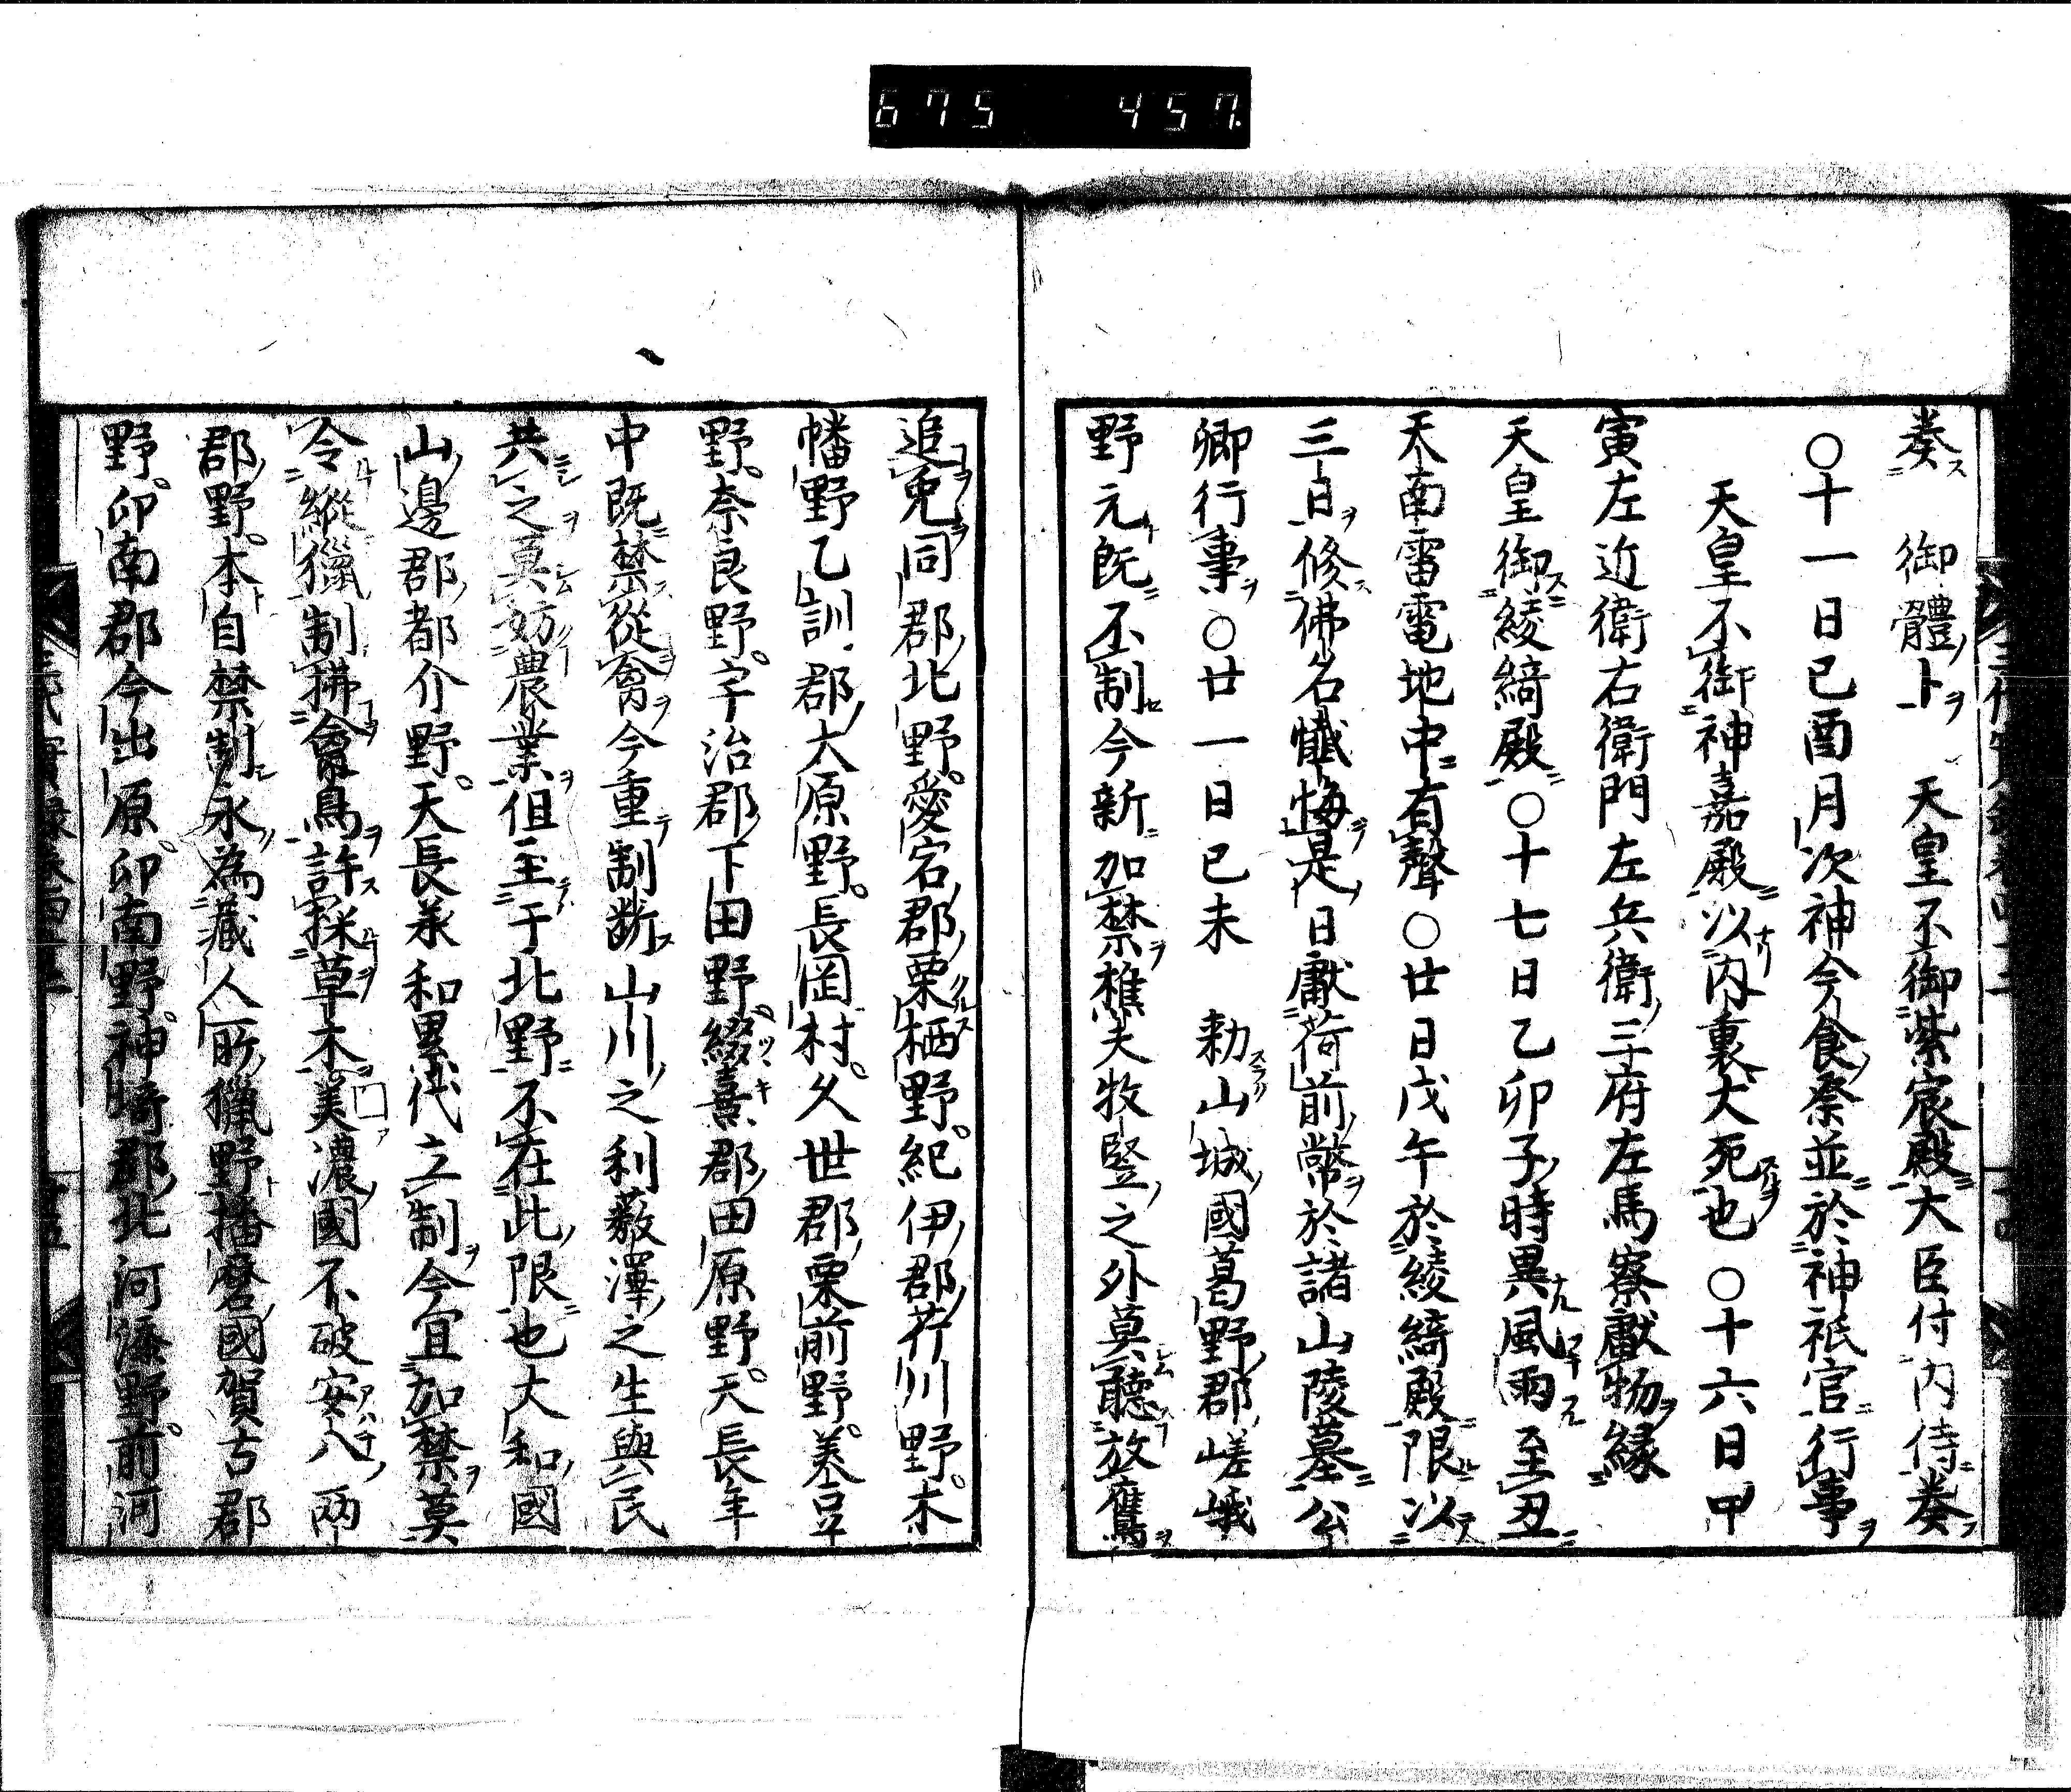 675 457
奏 御體卜 天皇不御紫宸殿大臣付内侍奏
○十一日己酉月次神今食祭並於神祇官行事
天皇不御神嘉殿以内裏犬死也○十六日甲
寅左近衛右衛門左兵衛三府左馬寮獻物縁
天皇御綾綺殿○十七日乙卯子時異風雨至丑
天南雷電地中有聲○廿日戊午於綾綺殿限以
三日修佛名懺悔是日獻荷前幣於諸山陵墓公
卿行事○廿一日己未 勅山城國葛野郡嵯峨
野元既不制今新加禁樵夫牧豎之外莫聽放鷹
追兎同郡北野愛宕郡栗栖野紀伊郡芹川野木
幡野乙訓郡大原野長岡村久世郡栗前野美豆
野奈良野宇治郡下田野綴喜郡田原野天長年
中既禁從禽今重制斷山川之利藪澤之生與民
共之莫妨農業但至于北野不在此限也大和國
山邊郡都介野天長承和累代立制今宜加禁莫
令縱獵制拂禽鳥許採草木美濃國不破安八兩
郡野本自禁制永為藏人所獵野播磨國賀古郡
野印南郡今出原印南野神埼郡北河添野前河